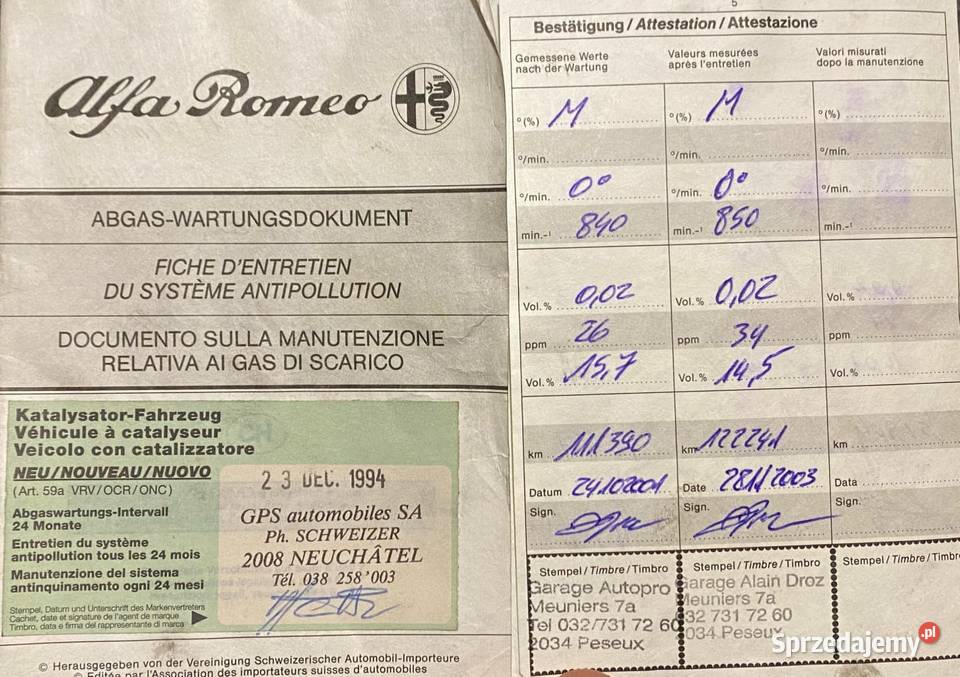 Alfa Romeo
ABGAS-WARTUNGSDOKUMENT
FICHE D'ENTRETIEN
DU SYSTÈME ANTIPOLLUTION
DOCUMENTO SULLA MANUTENZIONE
RELATIVA AI GAS DI SCARICO
Katalysator-Fahrzeug
Véhicule à catalyseur
Veicolo con catalizzatore
NEU/NOUVEAU/NUOVO
(Art. 59a VRV/OCR/ONC)
Abgaswartungs-Intervall
24 Monate
Entretien du système
antipollution tous les 24 mois
Manutenzione del sistema
antinquinamento ogni 24 mesi
Stempel, Datum und Unterschrift des Markenvertreters
Cachet, date et signature de l'agent de marque
Timbro, data e firma del rappresentante di marca
23 DEC. 1994
GPS automobiles SA
Ph. SCHWEIZER
2008 NEUCHÂTEL
Tél. 038 258'003
© Herausgegeben von der Vereinigung Schweizerischer Automobil-Importeure
© Editée par l'Association des importateurs suisses d'automobiles
5
Bestätigung / Attestation / Attestazione
Gemessene Werte
nach der Wartung
Valeurs mesurées
après l'entretien
Valori misurati
dopo la manutenzione
°(%) M °(%) M °(%)
°/min. °/min. °/min.
°/min. 0° °/min. 0° °/min.
min.-¹ 840 min.-¹ 850 min.-¹
Vol.% 0,02 Vol.% 0,02 Vol.%
ppm 26 ppm 34 ppm
Vol.% 15,7 Vol.% 14,5 Vol.%
km 111390 km 122241 km
Datum 24102001 Date 28112003 Data
Sign. Sign. Sign.
Stempel/Timbre/Timbro Stempel/Timbre/Timbro Stempel/Timbre/Timbro
Garage Autopro
Meuniers 7a
Tel 032/731 72 60
2034 Peseux
Garage Alain Droz
Meuniers 7a
032 731 72 60
2034 Peseux
Sprzedajemy.pl